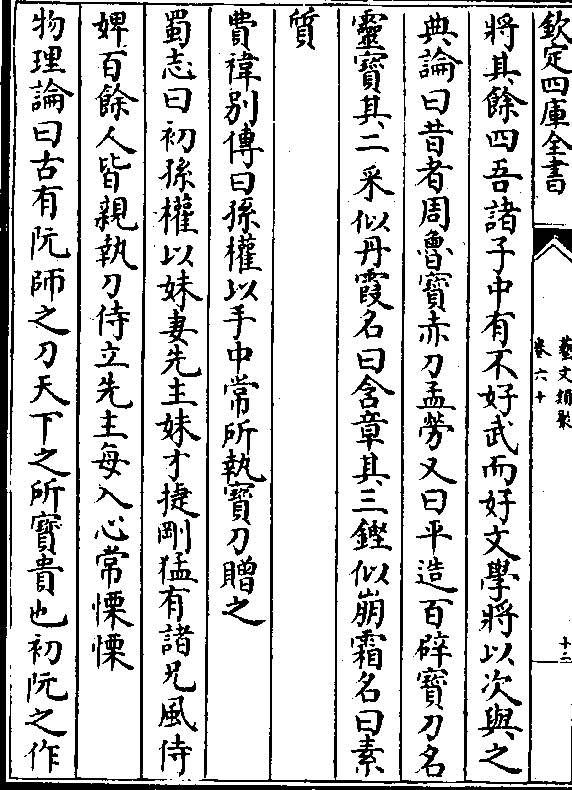 欽定四庫全書
藝文類聚
卷六十
十三
將其餘四吾諸子中有不好武而好文學將以次與之
典論曰昔者周魯寶赤刀孟勞又曰平造百辟寶刀名
靈寶其二采似丹霞名曰含章其三鏗似崩霜名曰素
質
費禕别傳曰孫權以手中常所執寶刀贈之
蜀志曰初孫權以妹妻先主妹才捷剛猛有諸兄風侍
婢百餘人皆親執刀侍立先主每入心常慄慄
物理論曰古有阮師之刀天下之所寶貴也初阮之作